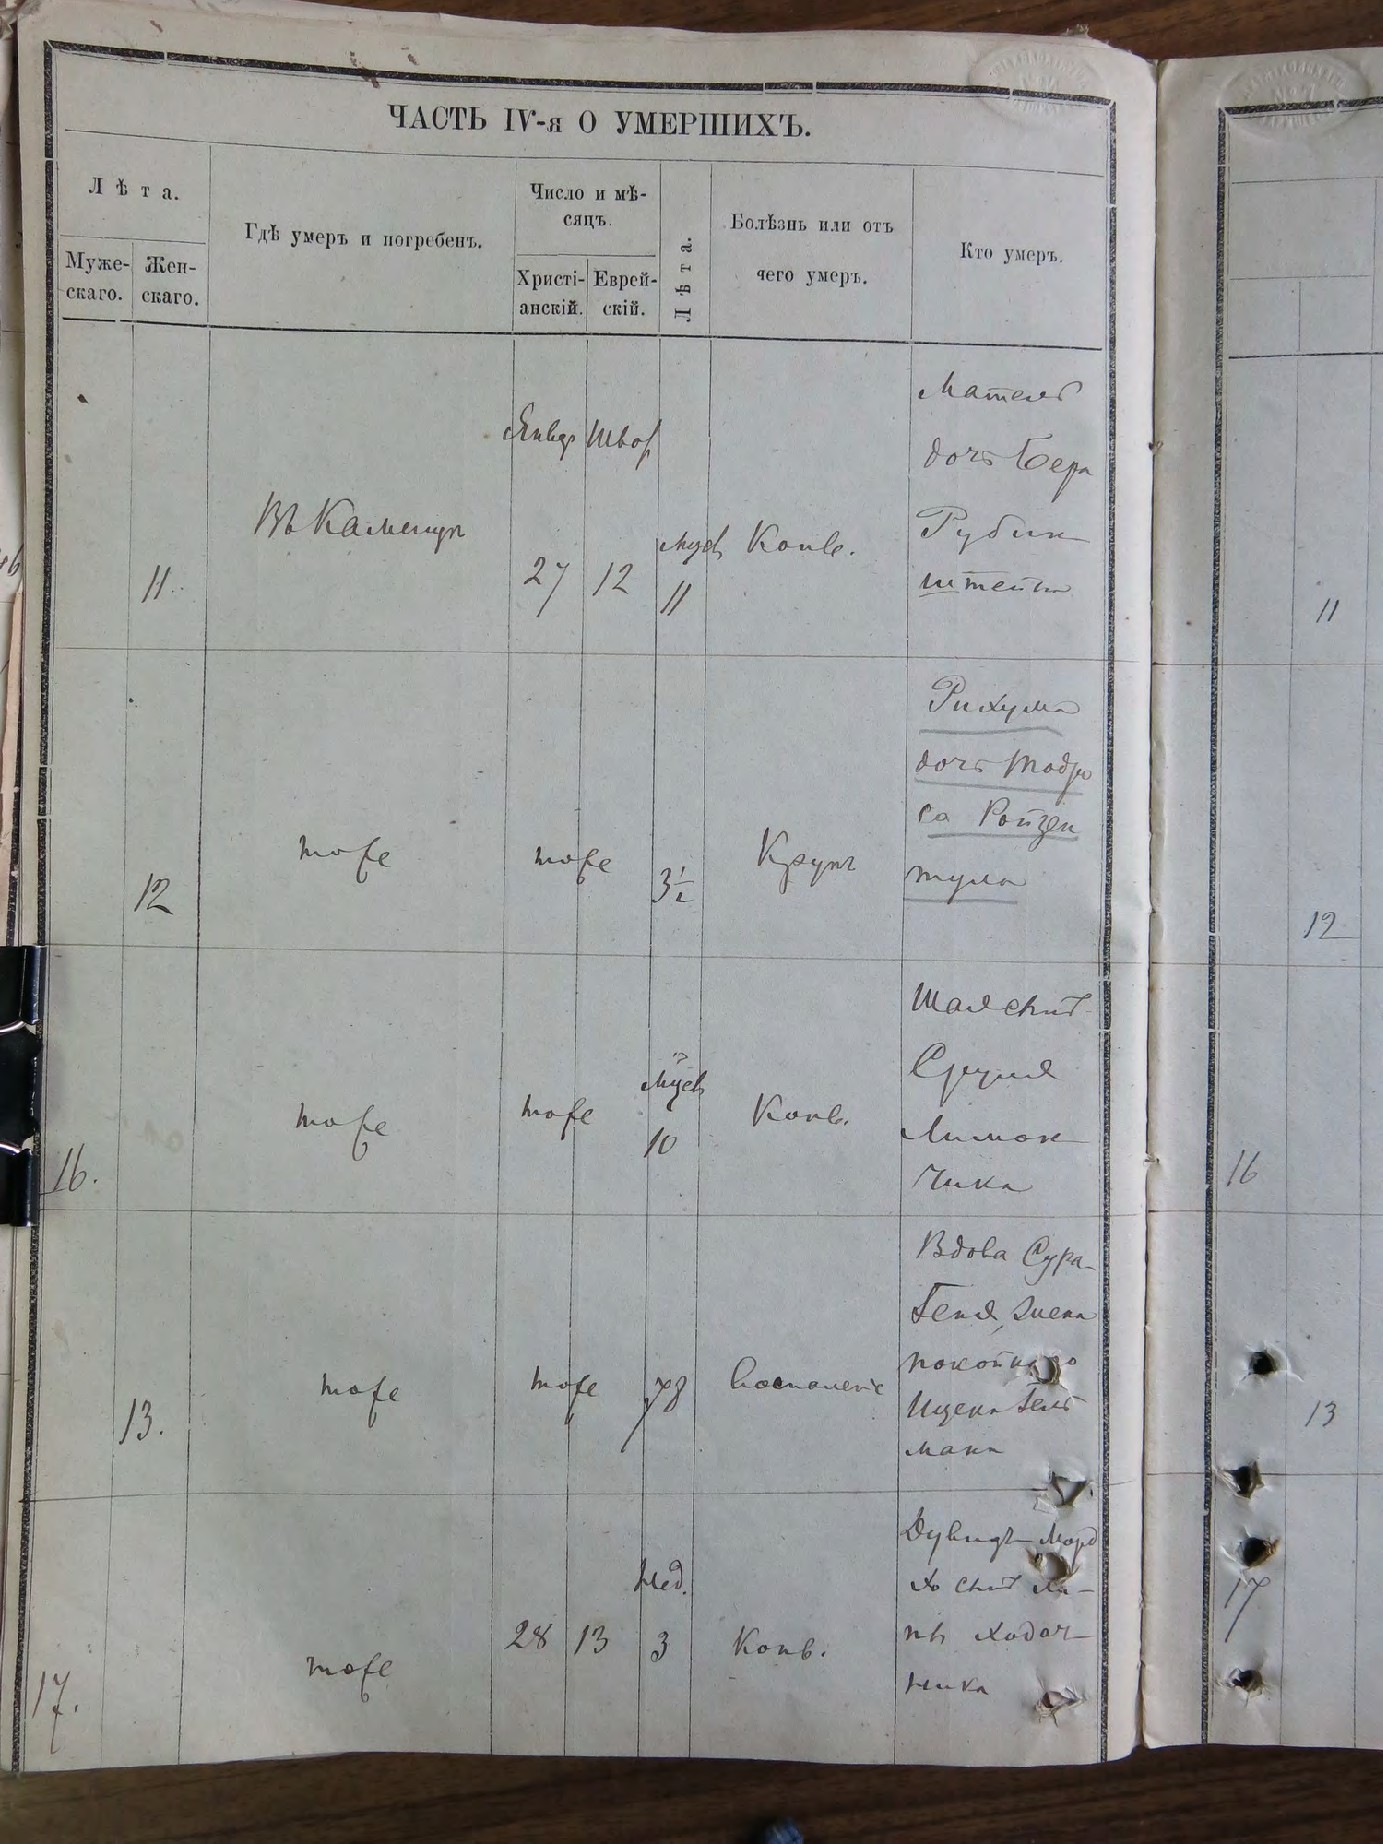 ЧАСТЬ IV-я О УМЕРШИХЪ.
Лѣта.
Муже-скаго.
Жен-скаго.
Гдѣ умеръ и погребенъ.
Число и мѣ-
сяцъ.
Христі-
анскій.
Еврей-
скій.
Лѣта.
Болѣзнь или отъ
чего умеръ.
Кто умеръ.
11.
Въ Каменцѣ
Январ Швот
27 12
11
Конв.
Матель
дочь Бера
Рубин
штейна
11
12
тоже
тоже
3½
Крупъ
Рихума
дочь Тодро
са Ройзен
тула
12
16.
тоже
тоже
10
Конв.
Шая сынъ
Сруля
Лимон
чика
16
13.
тоже
тоже
78
Воспаленіе
Вдова Сура-
Геня жена
покойнаго
Ицека Гель
мана
13
17.
тоже
28 13
Нед.
3
Конв.
Дувидъ Мордко сынъ
ходач
ника
17